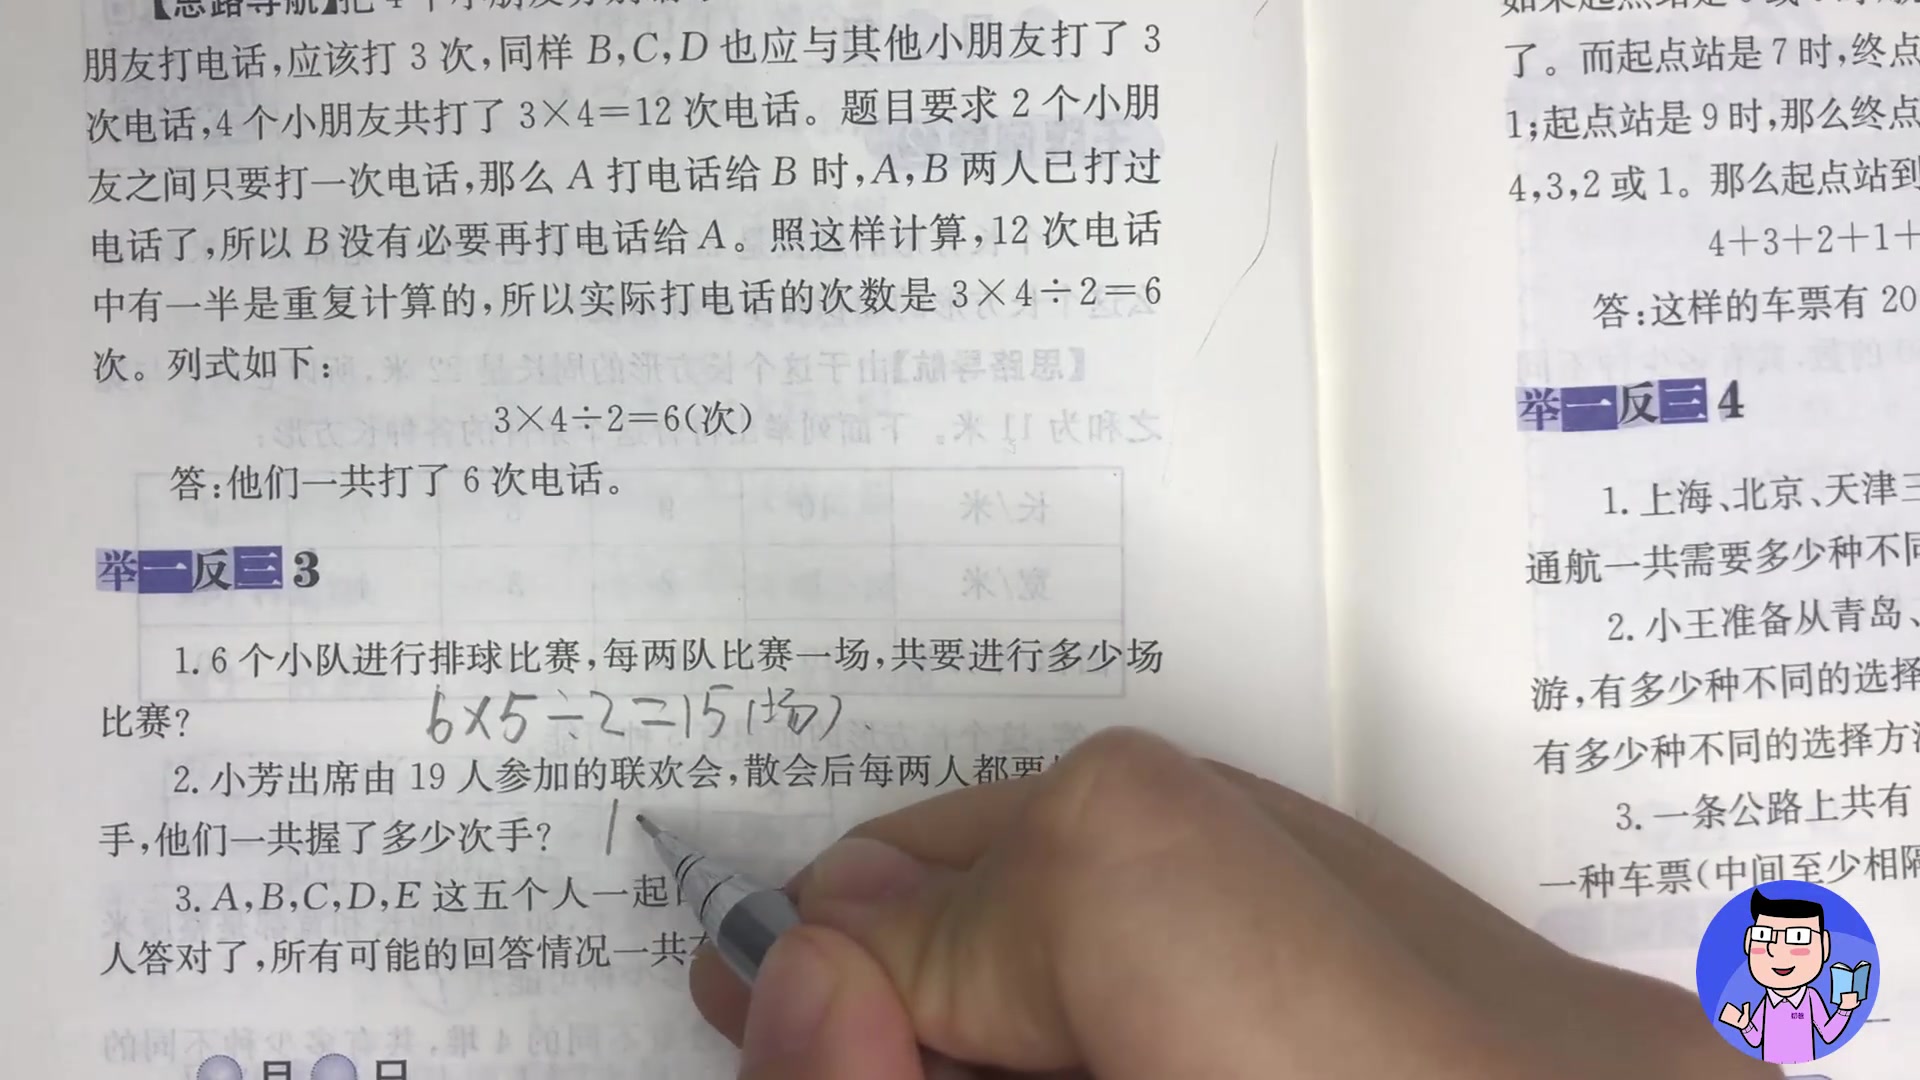 【思路导航】把4个小朋友分别
朋友打电话,应该打 3 次,同样 B,C,D 也应与其他小朋友打了 3
次电话,4 个小朋友共打了 3×4=12 次电话。题目要求 2 个小朋
友之间只要打一次电话,那么 A 打电话给 B 时,A,B 两人已打过
电话了,所以 B 没有必要再打电话给 A。照这样计算,12 次电话
中有一半是重复计算的,所以实际打电话的次数是 3×4÷2=6
次。列式如下:
3×4÷2=6(次)
答:他们一共打了 6 次电话。
举一反三 3
1. 6 个小队进行排球比赛,每两队比赛一场,共要进行多少场
比赛?
6×5÷2=15(场)
2. 小芳出席由 19 人参加的联欢会,散会后每两人都要
手,他们一共握了多少次手?
1
3. A,B,C,D,E 这五个人一起
人答对了,所有可能的回答情况一共
月 日
了。而起点站是 7 时,终点
1;起点站是 9 时,那么终点
4,3,2 或 1。那么起点站到
4+3+2+1+
答:这样的车票有 20
举一反三 4
1. 上海、北京、天津三
通航一共需要多少种不同
2. 小王准备从青岛、
游,有多少种不同的选择
有多少种不同的选择方法
3. 一条公路上共有
一种车票(中间至少相隔